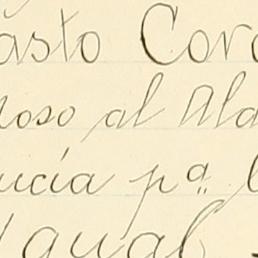 asto Cor
oso al Ald
ucía pª
gual